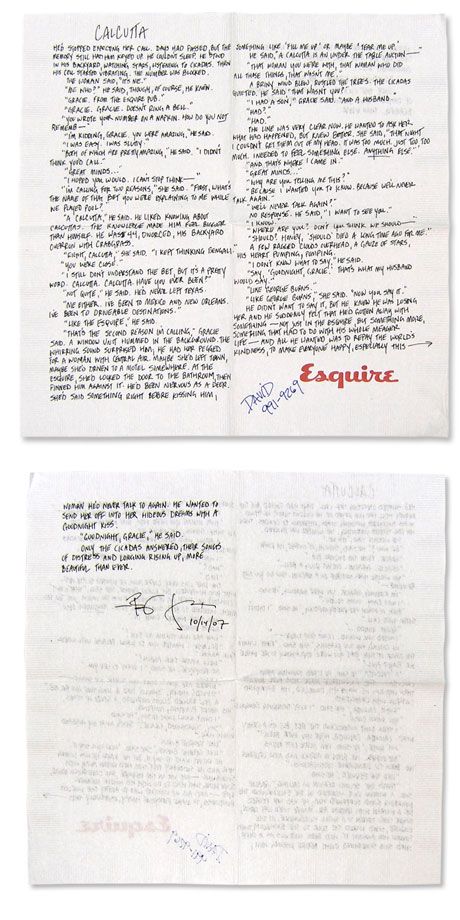 CALCUTTA
HE'D STOPPED EXPECTING HER CALL. DAYS HAD PASSED, BUT THE
MEMORY STILL HAD HIM KEYED UP. HE COULDN'T SLEEP. HE STOOD
IN HIS BACKYARD, WATCHING STARS, LISTENING TO CICADAS. THEN
HIS CELL STARTED VIBRATING. THE NUMBER WAS BLOCKED.
THE WOMAN SAID, "IT'S ME."
"ME WHO?" HE SAID, THOUGH, OF COURSE, HE KNEW.
"GRACIE. FROM THE ESQUIRE PUB."
"GRACIE. GRACIE. DOESN'T RING A BELL."
"YOU WROTE YOUR NUMBER ON A NAPKIN. HOW DO YOU NOT
REMEMBE—"
"I'M KIDDING, GRACIE. YOU WERE AMAZING," HE SAID.
"I WAS EASY. I WAS SLUTTY."
"BOTH OF WHICH ARE PRETTY AMAZING," HE SAID. "I DIDN'T
THINK YOU'D CALL."
"GREAT MINDS..."
"I HOPED YOU WOULD. I CAN'T STOP THINK—"
"I'M CALLING FOR TWO REASONS," SHE SAID. "FIRST, WHAT'S
THE NAME OF THAT BET YOU WERE EXPLAINING TO ME WHILE
WE PLAYED POOL?"
"A 'CALCUTTA,'" HE SAID. HE LIKED KNOWING ABOUT
CALCUTTAS. THE KNOWLEDGE MADE HIM FEEL BIGGER
THAN HIMSELF. HE WAS 44, DIVORCED, HIS BACKYARD
OVERRUN WITH CRABGRASS.
"RIGHT, CALCUTTA," SHE SAID. "I KEPT THINKING BENGALI."
"YOU WERE CLOSE."
"I STILL DON'T UNDERSTAND THE BET, BUT IT'S A PRETTY
WORD. CALCUTTA. CALCUTTA. HAVE YOU EVER BEEN?"
"NOT QUITE," HE SAID. HE'D NEVER LEFT TEXAS.
"ME EITHER. I'VE BEEN TO MEXICO AND NEW ORLEANS.
I'VE BEEN TO DRIVEABLE DESTINATIONS."
"LIKE THE ESQUIRE," HE SAID.
"THAT'S THE SECOND REASON I'M CALLING," GRACIE
SAID. A WINDOW UNIT HUMMED IN THE BACKGROUND. THE
WHIRRING SOUND SURPRISED HIM; HE HAD HER PEGGED
FOR A WOMAN WITH CENTRAL AIR. MAYBE SHE'D LEFT TOWN,
MAYBE SHE'D DRIVEN TO A MOTEL SOMEWHERE. AT THE
ESQUIRE, SHE'D LOCKED THE DOOR TO THE BATHROOM, THEN
PINNED HIM AGAINST IT. HE'D BEEN NERVOUS AS A DEER.
SHE'D SAID SOMETHING RIGHT BEFORE KISSING HIM,
SOMETHING LIKE 'FILL ME UP' OR MAYBE 'TEAR ME UP.'
HE SAID, "A CALCUTTA IS AN UNDER THE TABLE AUCTION—"
"THAT WOMAN YOU WERE WITH, THAT WOMAN WHO DID
ALL THOSE THINGS, THAT WASN'T ME."
A BRINY WIND BLEW, RUSTLED THE TREES. THE CICADAS
QUIETED. HE SAID "THAT WASN'T YOU?"
"I HAD A SON," GRACIE SAID. "AND A HUSBAND."
"HAD?"
"HAD."
THE LINE WAS VERY CLEAR NOW. HE WANTED TO ASK HER
WHAT HAD HAPPENED, BUT KNEW BETTER. SHE SAID, "THAT NIGHT
I COULDN'T GET THEM OUT OF MY HEAD. IT WAS TOO MUCH. JUST TOO TOO
MUCH. I NEEDED TO FEEL SOMETHING ELSE. ANYTHING ELSE."
"AND THAT'S WHERE I CAME IN."
"GREAT MINDS..."
"WHY ARE YOU TELLING ME THIS?"
"BECAUSE I WANTED YOU TO KNOW. BECAUSE WE'LL NEVER
TALK AGAIN."
"WE'LL NEVER TALK AGAIN?"
NO RESPONSE. HE SAID, "I WANT TO SEE YOU."
"I KNOW."
"WHERE ARE YOU? DON'T YOU THINK WE SHOULD—"
"SHOULD? HONEY, 'SHOULD' DIED A LONG TIME AGO FOR ME."
A FEW RAGGED CLOUDS OVERHEAD, A GAUZE OF STARS,
HIS HEART PUMPING, PUMPING.
"I DON'T KNOW WHAT TO SAY," HE SAID.
"SAY, 'GOODNIGHT, GRACIE.' THAT'S WHAT MY HUSBAND
WOULD SAY."
"LIKE GEORGE BURNS."
"LIKE GEORGE BURNS," SHE SAID. "NOW YOU SAY IT."
HE DIDN'T WANT TO SAY IT, BUT HE KNEW HE WAS LOSING
HER AND HE SUDDENLY FELT THAT HE'D GOTTEN AWAY WITH
SOMETHING— NOT JUST IN THE ESQUIRE BUT SOMETHING MORE,
SOMETHING THAT HAD TO DO WITH HIS WHOLE MEAGER
LIFE— AND ALL HE WANTED WAS TO REPAY THE WORLD'S
KINDNESS, TO MAKE EVERYONE HAPPY, ESPECIALLY THIS →
Esquire
DAVID
991-9269
WOMAN HE'D NEVER TALK TO AGAIN. HE WANTED TO
SEND HER OFF INTO HER HIDEOUS DREAMS WITH A
GOODNIGHT KISS.
"GOODNIGHT, GRACIE," HE SAID.
ONLY THE CICADAS ANSWERED, THEIR SONGS
OF DISTRESS AND LONGING RISING UP, MORE
BEAUTIFUL THAN EVER.
10/14/07